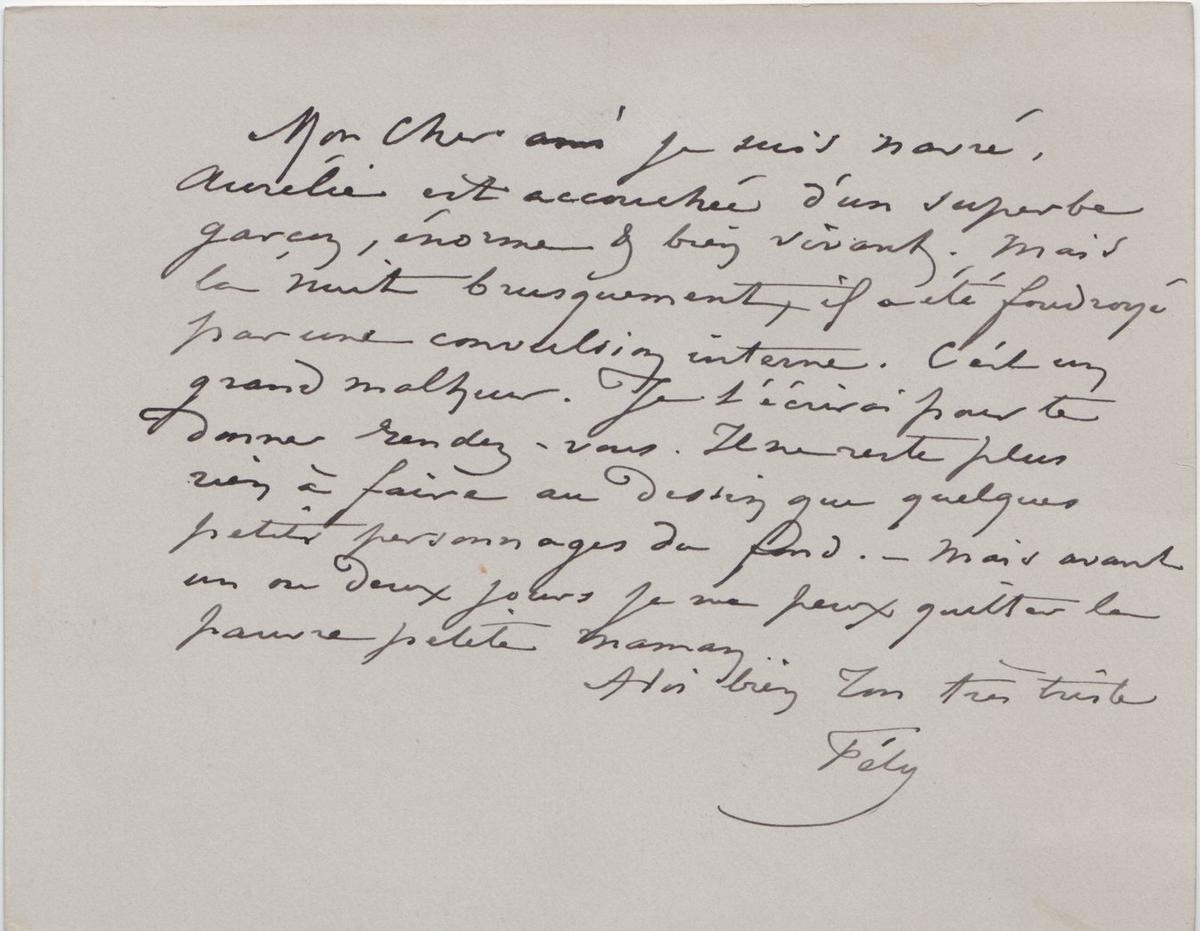 Mon cher ami je suis navré,
Aurélie est accouchée d'un superbe
garçon, énorme & bien vivant. Mais
la nuit brusquement, il a été foudroyé
par une convulsion interne. C'est un
grand malheur. Je t'écrirai pour te
donner rendez-vous. Il ne reste plus
rien à faire au dessin que quelques
petits personnages du fond. – Mais avant
un ou deux jours je ne peux quitter la
pauvre petite maman.
A toi bien Ton très triste
Fély